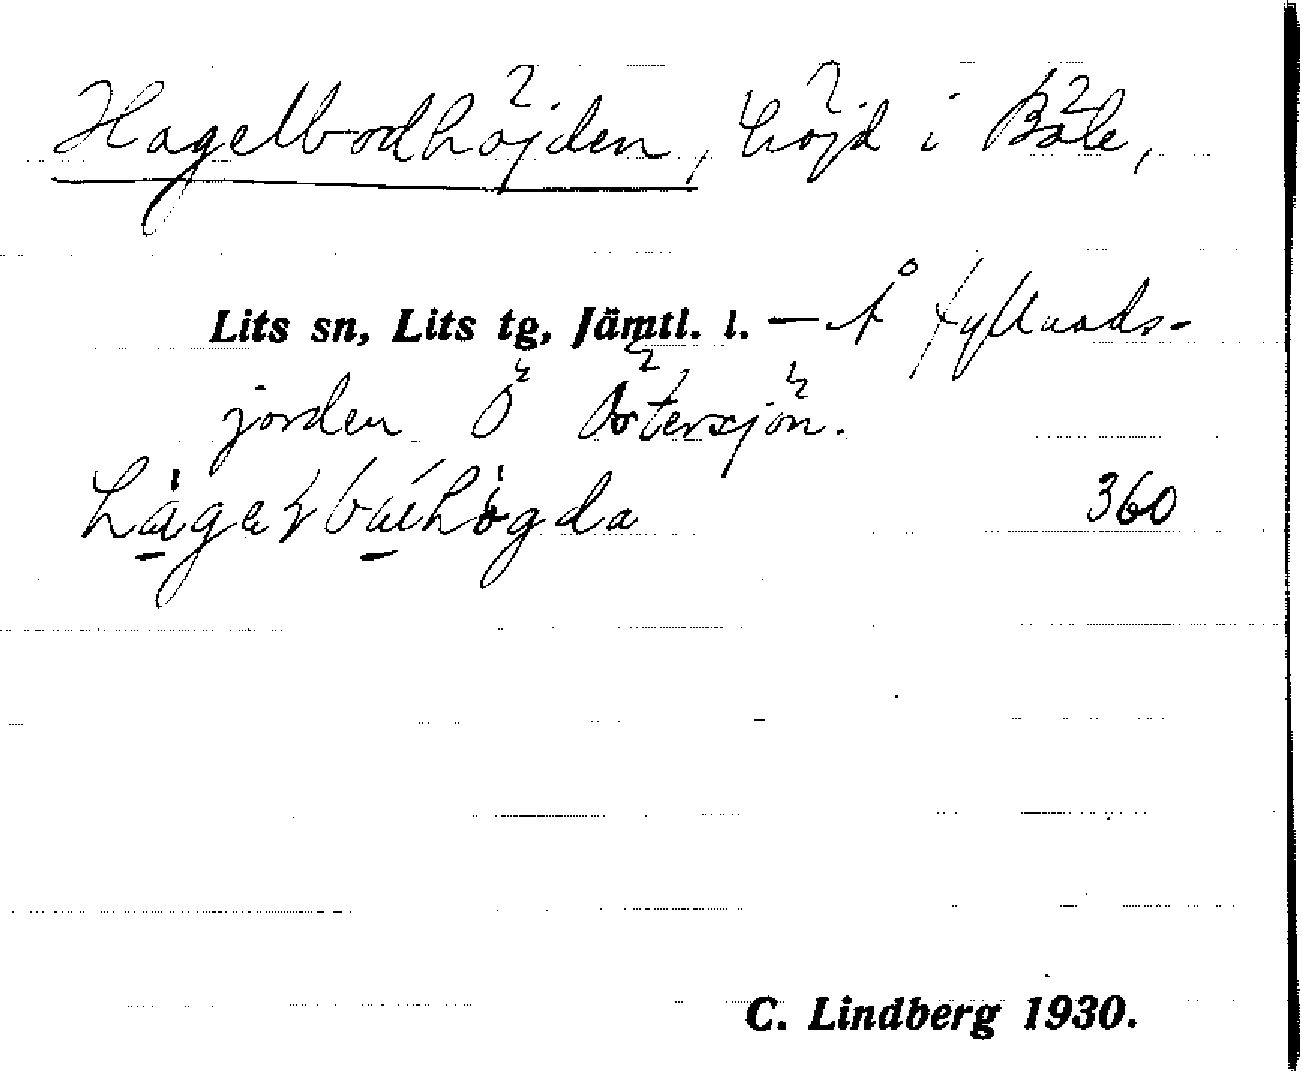 Hagelbodhöjden, höjd i Böle,
Lits sn, Lits tg, Jämtl. l. — Å Kyllnads-
jorden Ö Östersjön.
360
C. Lindberg 1930.